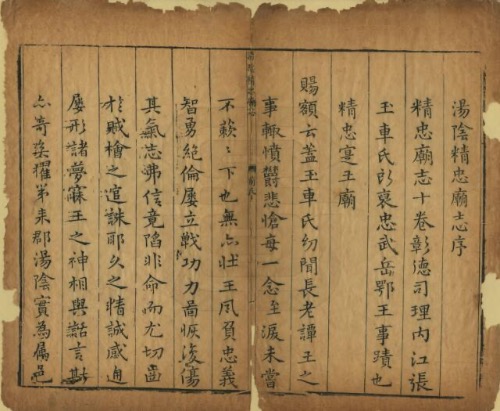 湯陰精忠廟志序
精忠廟志十卷彰德司理內江張
玉車氏所裒忠武岳鄂王事蹟也
精忠寔王廟
賜額云蓋玉車氏幼聞長老譚王之
事輒憤欝悲愴每一念至淚未嘗
不簌〻下也無亦壯王夙負忠義
智勇絕倫屢立戰功力啚恢復傷
其氣志弗信竟陷非命而尤切齒
於賊檜之逭誅耶久之情誠感通
屢形諸夢寐王之神相與話言斯
亦奇矣擢第来郡湯陰實為屬邑